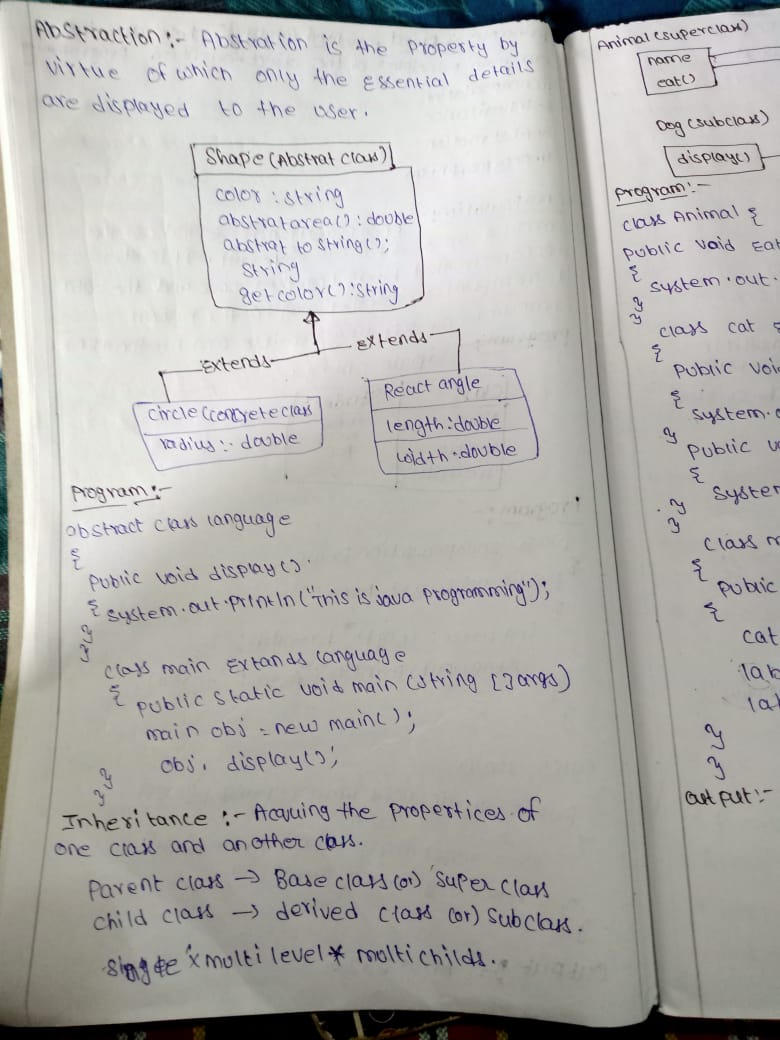 Abstraction :- Abstration is the property by
virtue of which only the essential details
are displayed to the user.
Shape (Abstrat class)
color : string
abstrat area() : double
abstrat to string();
string
getcolor() : string
Extends
Extends
circle (concrete class
radius :- double
React angle
length : double
width : double
Program :-
abstract class language
{
public void display()
{ system.out.println("This is java programming");
}
}
class main Extands language
{ public static void main (string []args)
main obj = new main();
obj. display();
}
}
Inheritance :- Acquing the propertices of
one class and another class.
Parent class → Base class (or) super class
child class → derived class (or) subclass.
single * multi level * molti childs.
Animal (superclass)
name
eat()
Dog (subclass)
display()
program :-
class Animal {
public void Eat
{
system.out.
}
}
class cat {
{
public voi
{
system.o
}
public v
{
system
}
}
class m
{
public
{
cat
lab
la
}
}
out put :-